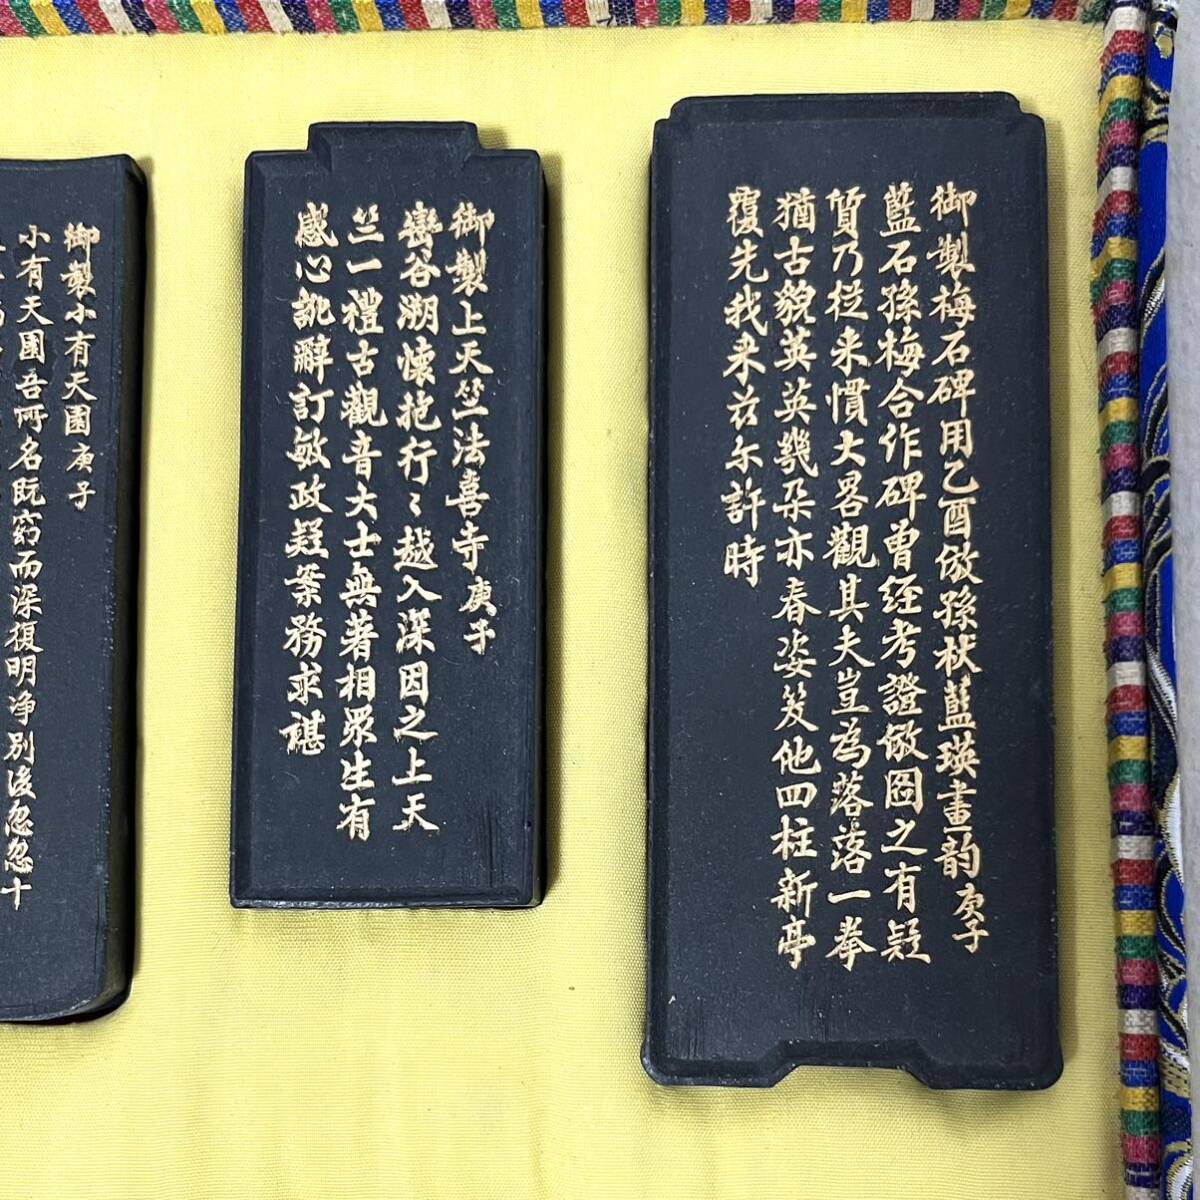 御製梅石碑用乙酉倣孫杕藍瑛畫韵庚子
藍石孫梅合作碑曽經考證倣圖之有疑
質乃從来慣大畧觀其夫豈為落落一拳
猶古貌英英幾朶亦春姿笑他四柱新亭
覆先我来兹尔許時
御製上天竺法喜寺庚子
巒谷溯懷抱行〻越入深因之上天
竺一禮古觀音大士無著相眾生有
感心訛辭訂敏政疑案務求諶
御製小有天園庚子
小有天園吾所名既窈而深復明净别後忽忽十